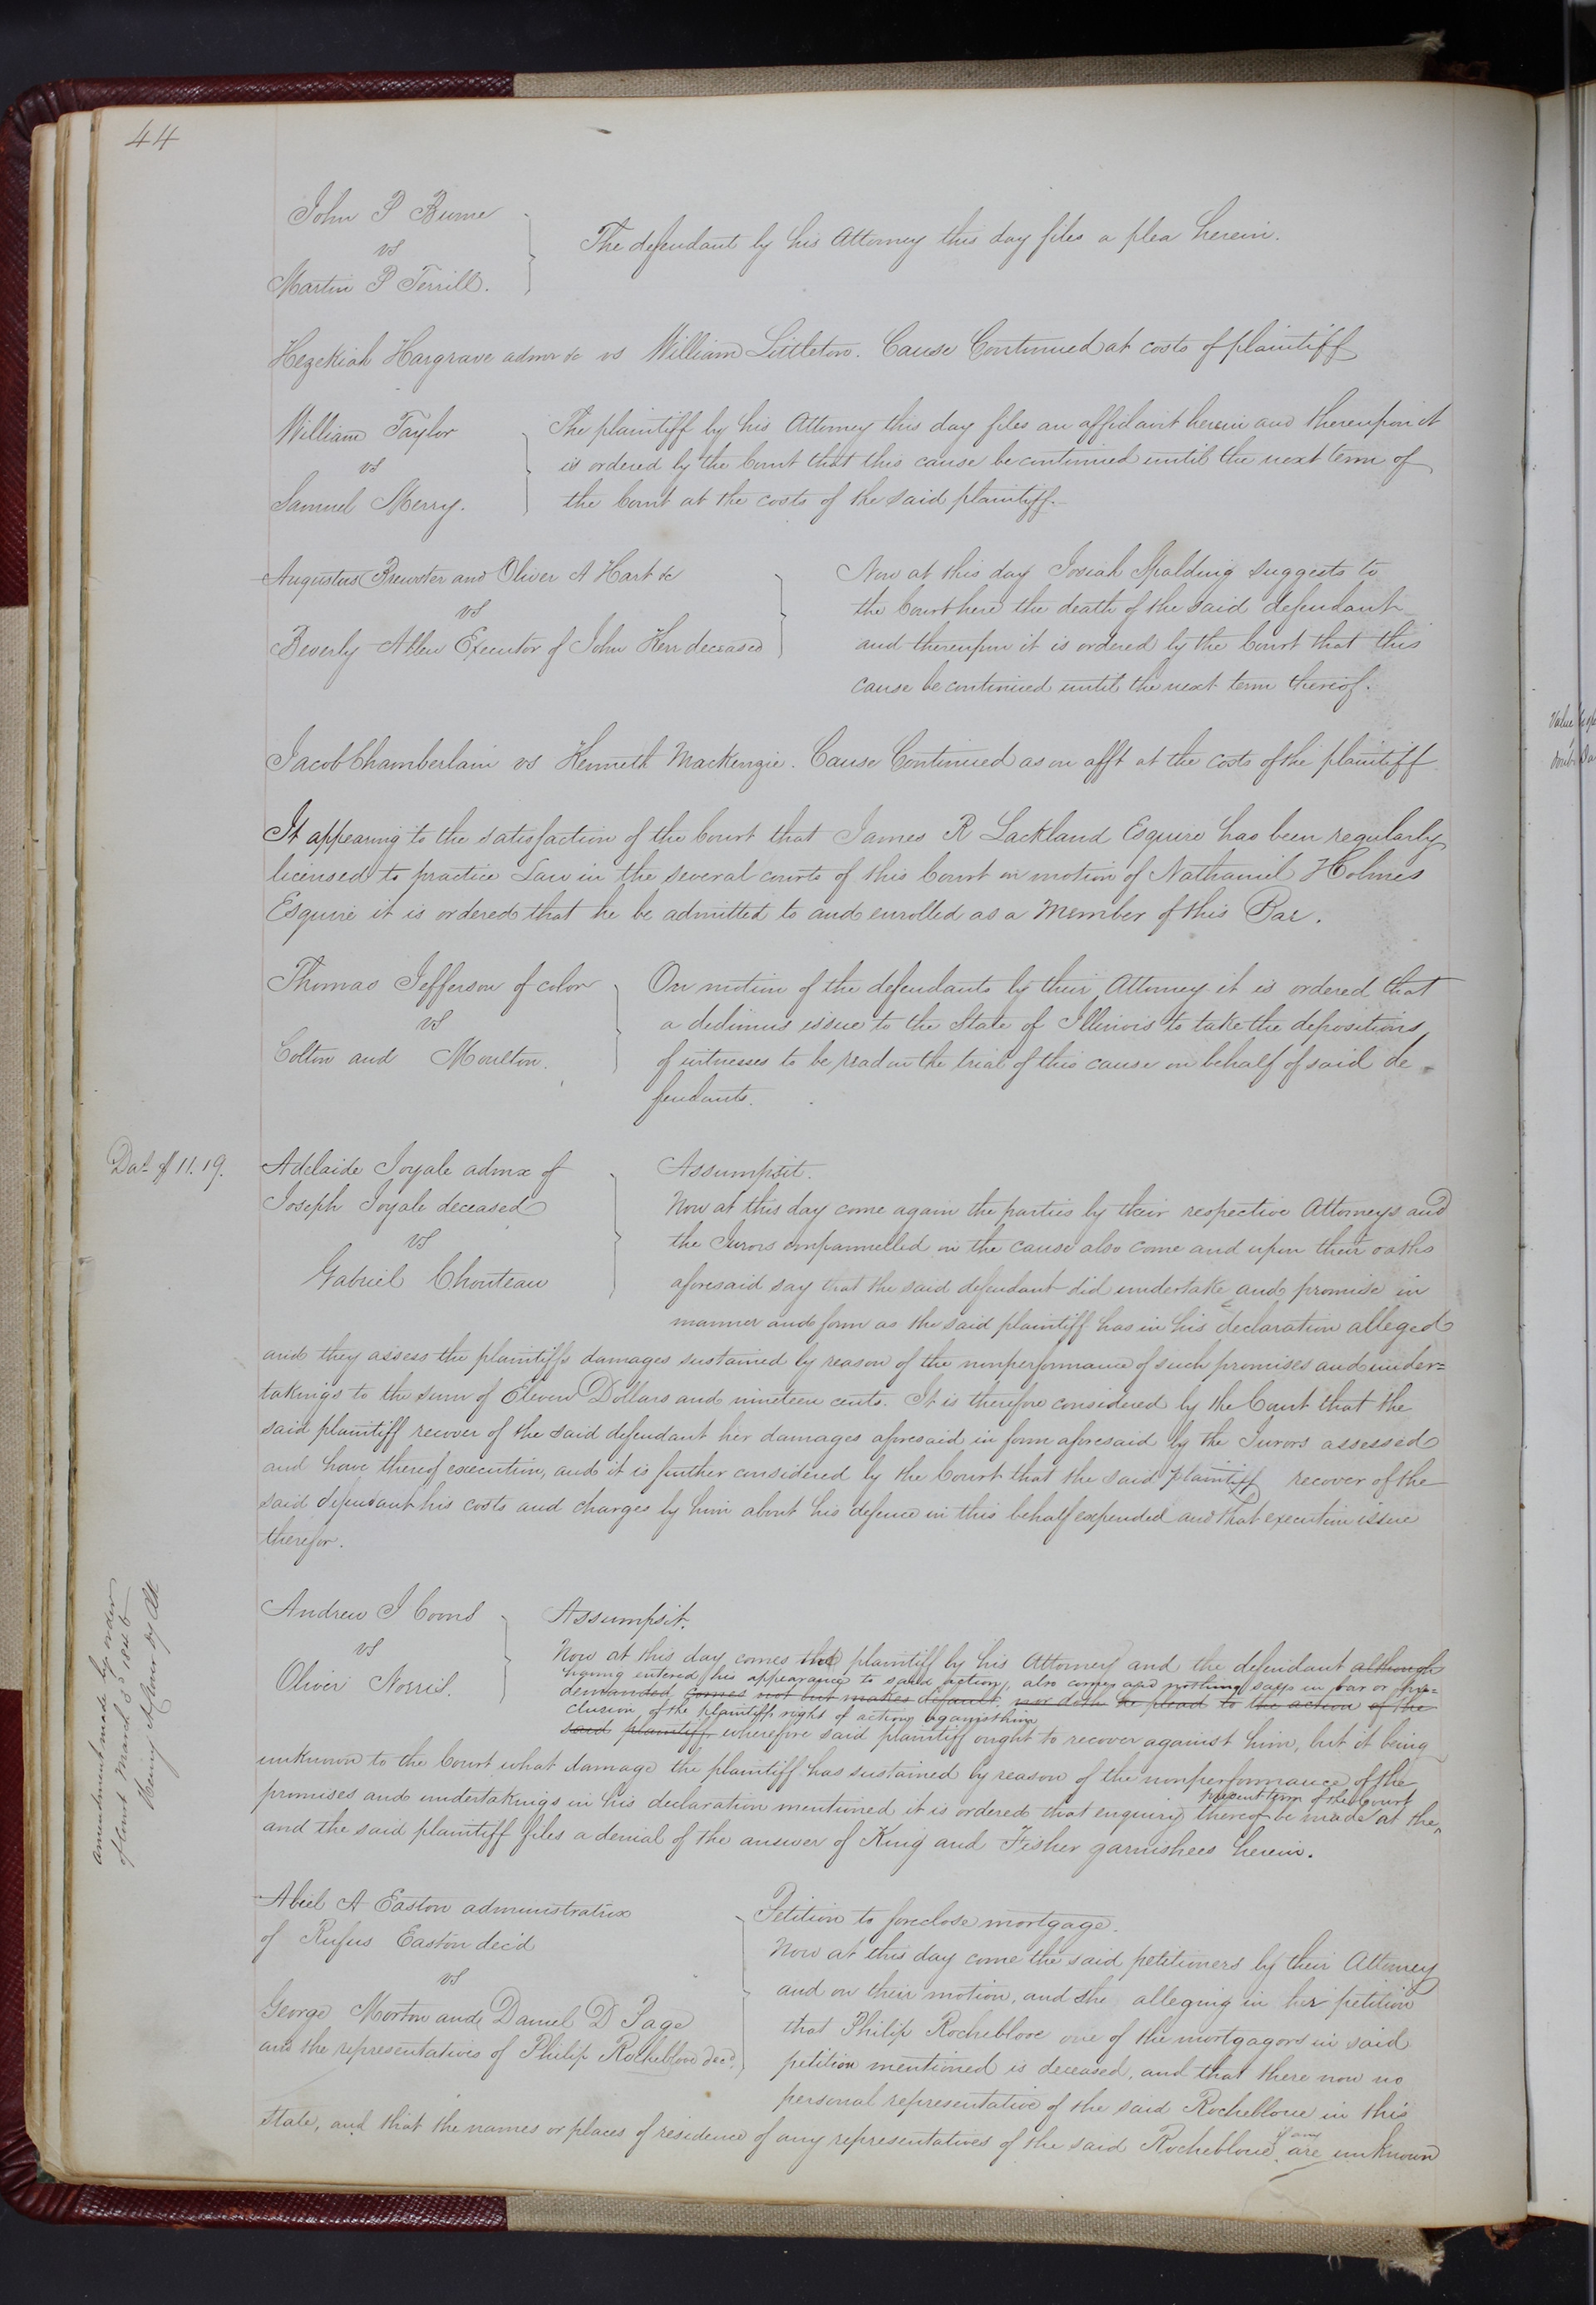 44
John P Burne
vs
Martin P Terrill.
The defendant by his Attorney this day files a plea herein.
Hezekiah Hargrave admr &c vs William Littleton. Cause Continued at costs of plaintiff
William Taylor
vs
Samuel Merry.
The plaintiff by his Attorney this day files an affidavit herein and thereupon it
is ordered by the Court that this cause be continued until the next term of
the Court at the costs of the said plaintiff.
Augustus Brewster and Oliver A Hart &c
vs
Beverly Allen Executor of John Kerr deceased
Now at this day Josiah Spalding suggests to
the Court here the death of the said defendant
and thereupon it is ordered by the Court that this
cause be continued until the next term thereof.
Jacob Chamberlain vs Kenneth Mackenzie. Cause Continued as on afft at the costs of the plaintiff
It appearing to the satisfaction of the Court that James R Lackland Esquire has been regularly
licensed to practice Law in the several courts of this Court on motion of Nathaniel Holmes
Esquire it is ordered that he be admitted to and enrolled as a Member of this Bar.
Thomas Jefferson of color
vs
Colton and Moulton.
On motion of the defendants by their Attorney it is ordered that
a dedimus issue to the State of Illinois to take the depositions
of witnesses to be read on the trial of this cause on behalf of said de
fendants.
Da. $11.19.
Adelaide Joyale admx of
Joseph Joyale deceased
vs
Gabriel Chouteau
Assumpsit.
Now at this day come again the parties by their respective Attorneys and
the Jurors empannelled in the cause also come and upon their oaths
aforesaid say that the said defendant did undertake and promise in
manner and form as the said plaintiff has in his declaration alleged
and they assess the plaintiffs damages sustained by reason of the nonperformance of such promises and under=
takings to the sum of Eleven Dollars and nineteen cents. It is therefore considered by the Court that the
said plaintiff recover of the said defendant her damages aforesaid in form aforesaid by the Jurors assessed
and have thereof execution, and it is further considered by the Court that the said plaintiff recover of the
said defendant his costs and charges by him about his defence in this behalf expended and that execution issue
therefor.
amendment made by order
of Court March 5th 1846
Andrew J Coons
vs
Oliver Norris.
Assumpsit.
Now at this day comes the plaintiff by his Attorney and the defendant although
having entered his appearance to said action, also comes and nothing says in bar or pre=
demanded comes not but makes default. nor doth he plead to the action of the
clusion of the plaintiffs right of action against him
said plaintiff wherefore said plaintiff ought to recover against him, but it being
unknown to the Court what damage the plaintiff has sustained by reason of the nonperformance of the
present term of the Court
promises and undertakings in his declaration mentioned it is ordered that enquiry thereof be made at the
and the said plaintiff files a denial of the answer of King and Fisher garnishees herein.
Abiel A Easton administratrix
of Rufus Easton dec'd
vs
George Morton and Daniel D Page
and the representatives of Philip Rocheblove decd.
Petition to foreclose mortgage.
Now at this day come the said petitioners by their Attorney
and on their motion, and she alleging in her petition
that Philip Rocheblove one of the mortgagors in said
petition mentioned is deceased, and that there now no
personal representative of the said Rocheblove in this
if any
State, and that the names or places of residence of any representatives of the said Rocheblove are unknown